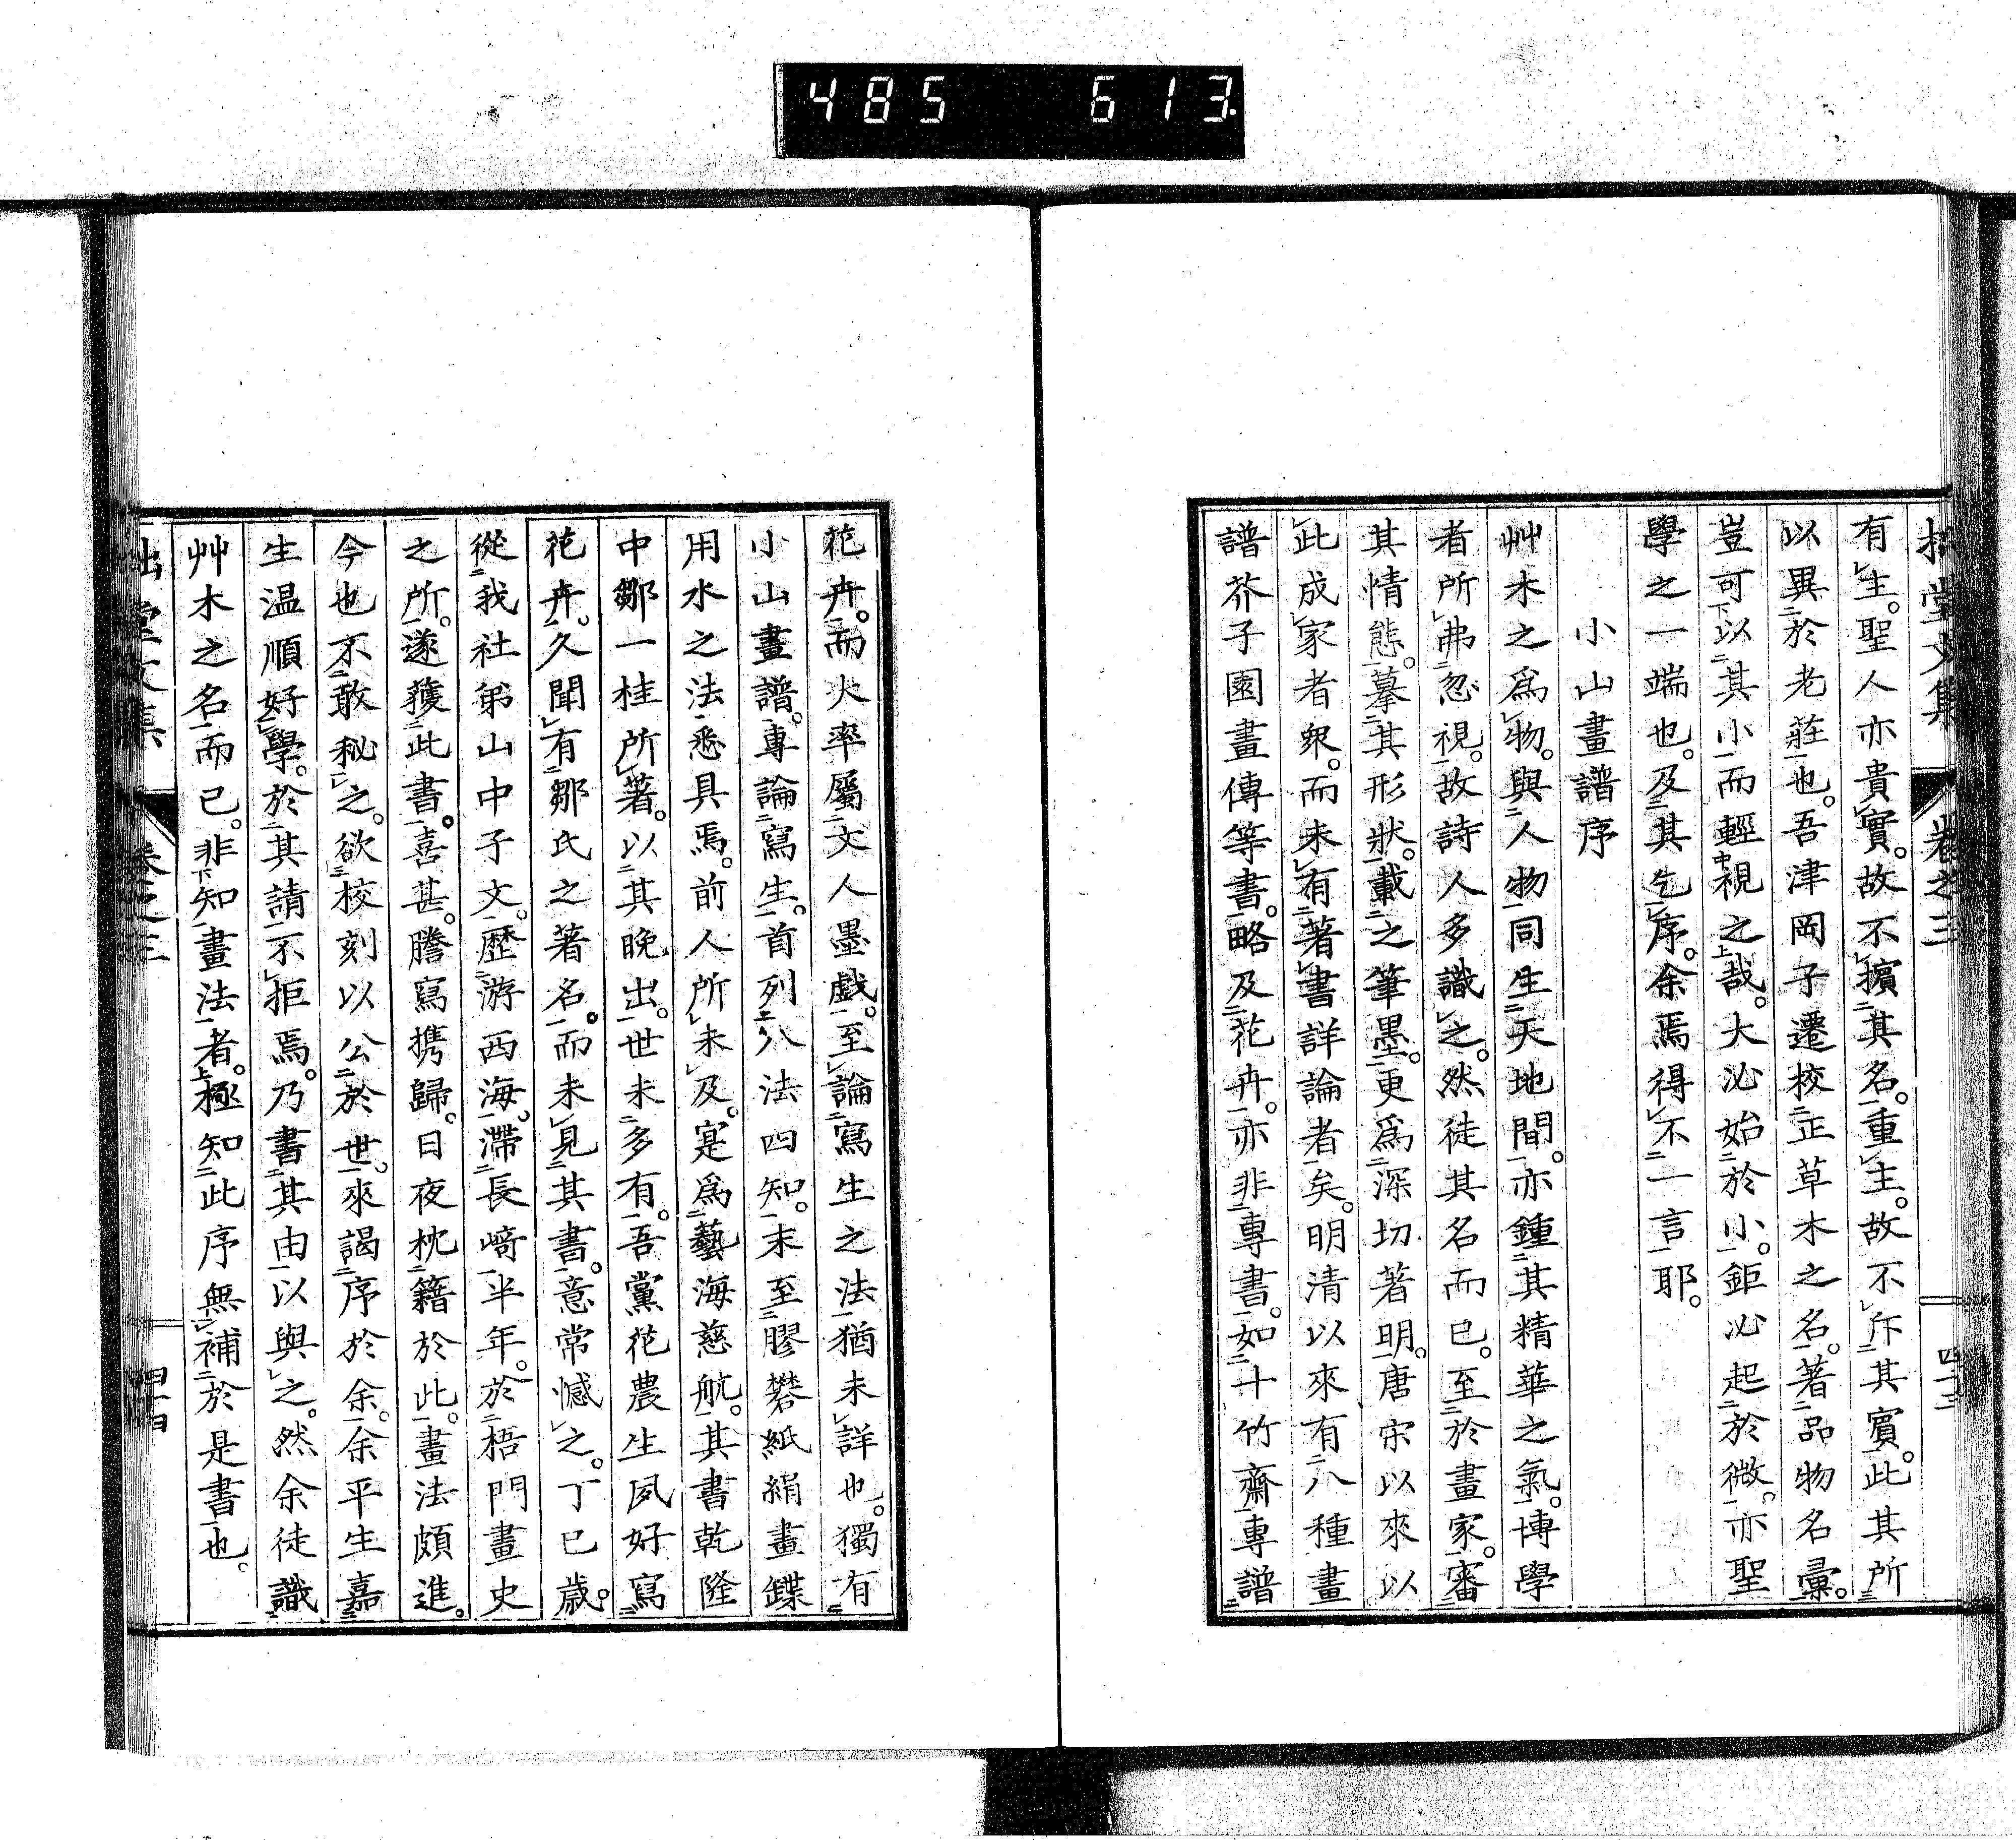 485 613
拙堂文集 卷之三 四十三
有主。聖人亦貴實。故不擯其名。重主。故不斥其賓。此其所
以異於老莊也。吾津岡子遷校正草木之名。著品物名彙。
豈可以其小而輕視之哉。大必始於小。鉅必起於微。亦聖
學之一端也。及其乞序。余焉得不一言耶。
小山畫譜序
艸木之爲物。與人物同生天地間。亦鍾其精華之氣。博學
者所弗忽視。故詩人多識之。然徒其名而已。至於畫家。審
其情態。摹其形狀。載之筆墨。更爲深切著明。唐宋以來以
此成家者衆。而未有著書詳論者矣。明清以來有八種畫
譜芥子園畫傳等書。略及花卉。亦非專書。如十竹齋專譜
花卉。而大率屬文人墨戲。至論寫生之法猶未詳也。獨有
小山畫譜。專論寫生。首列八法四知。末至膠礬紙絹畫鏶
用水之法悉具焉。前人所未及。寔爲藝海慈航。其書乾隆
中鄒一桂所著。以其晩出。世未多有。吾黨花農生夙好寫
花卉。久聞有鄒氏之著名。而未見其書。意常憾之。丁巳歲。
從我社弟山中子文。歷游西海。滯長﨑半年。於梧門畫史
之所。遂獲此書。喜甚。謄寫携歸。日夜枕籍於此。畫法頗進。
今也不敢秘之。欲校刻以公於世。來謁序於余。余平生嘉
生温順好學。於其請不拒焉。乃書其由以與之。然余徒識
艸木之名而已。非知畫法者。極知此序無補於是書也。
拙堂文集 卷之三 四十四